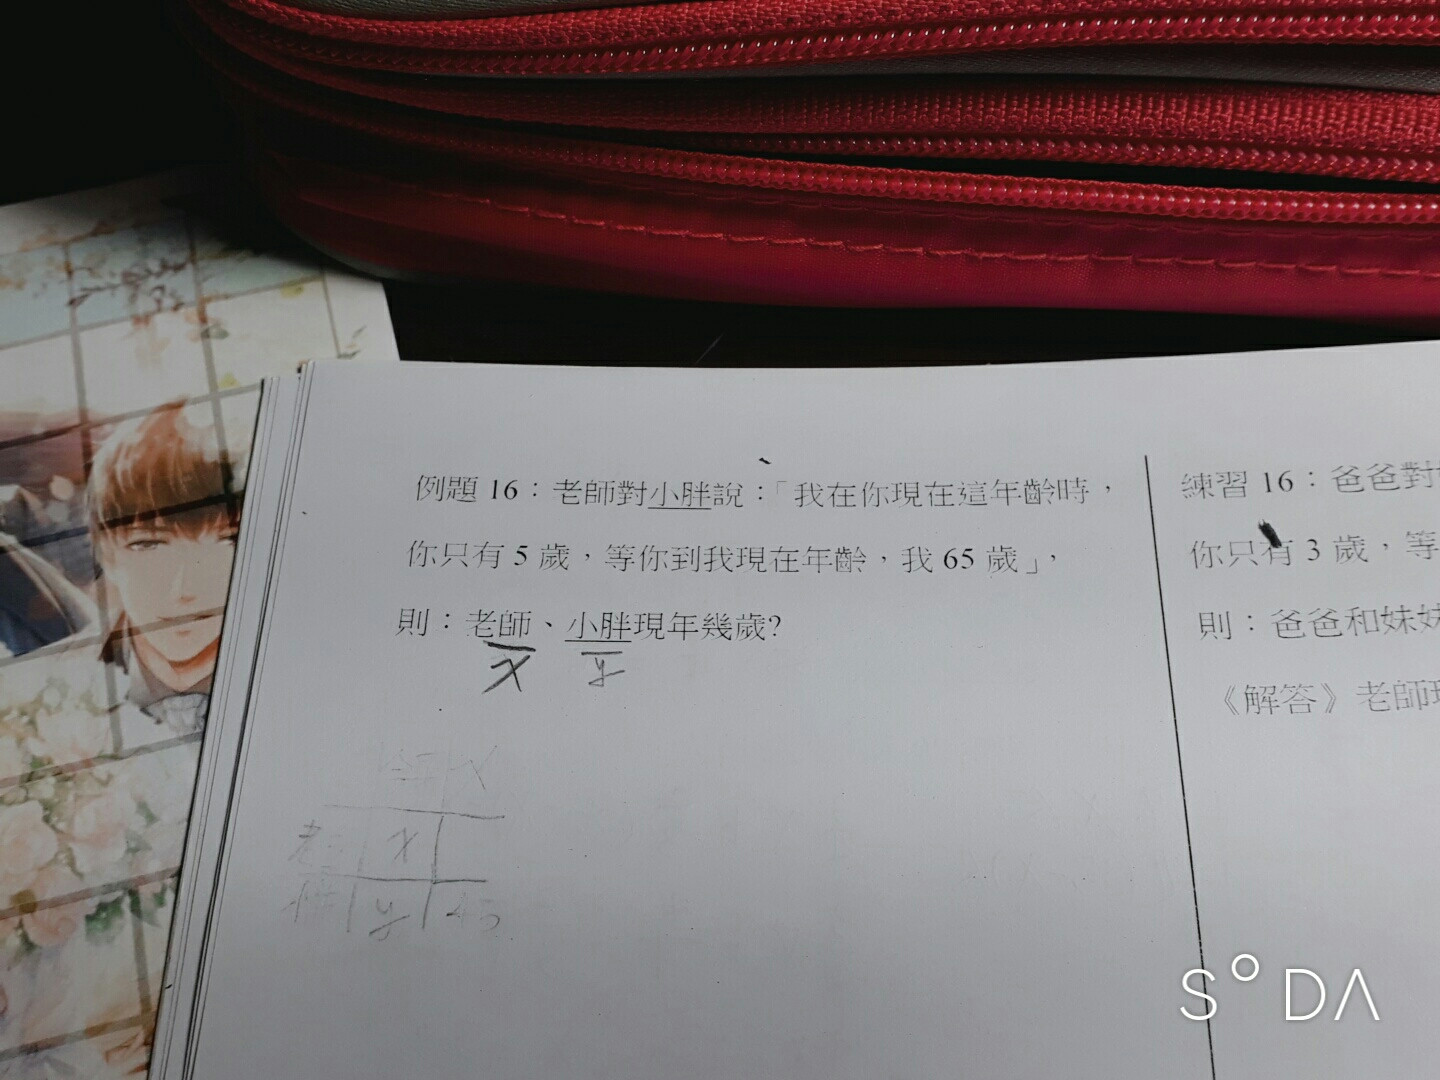 例題 16：老師對小胖說：「我在你現在這年齡時，
你只有 5 歲，等你到我現在年齡，我 65 歲」，
則：老師、小胖現年幾歲?
x y
x
老
x
y
練習 16：爸爸對
你只有 3 歲，等
則：爸爸和妹妹
《解答》老師現
S°DA